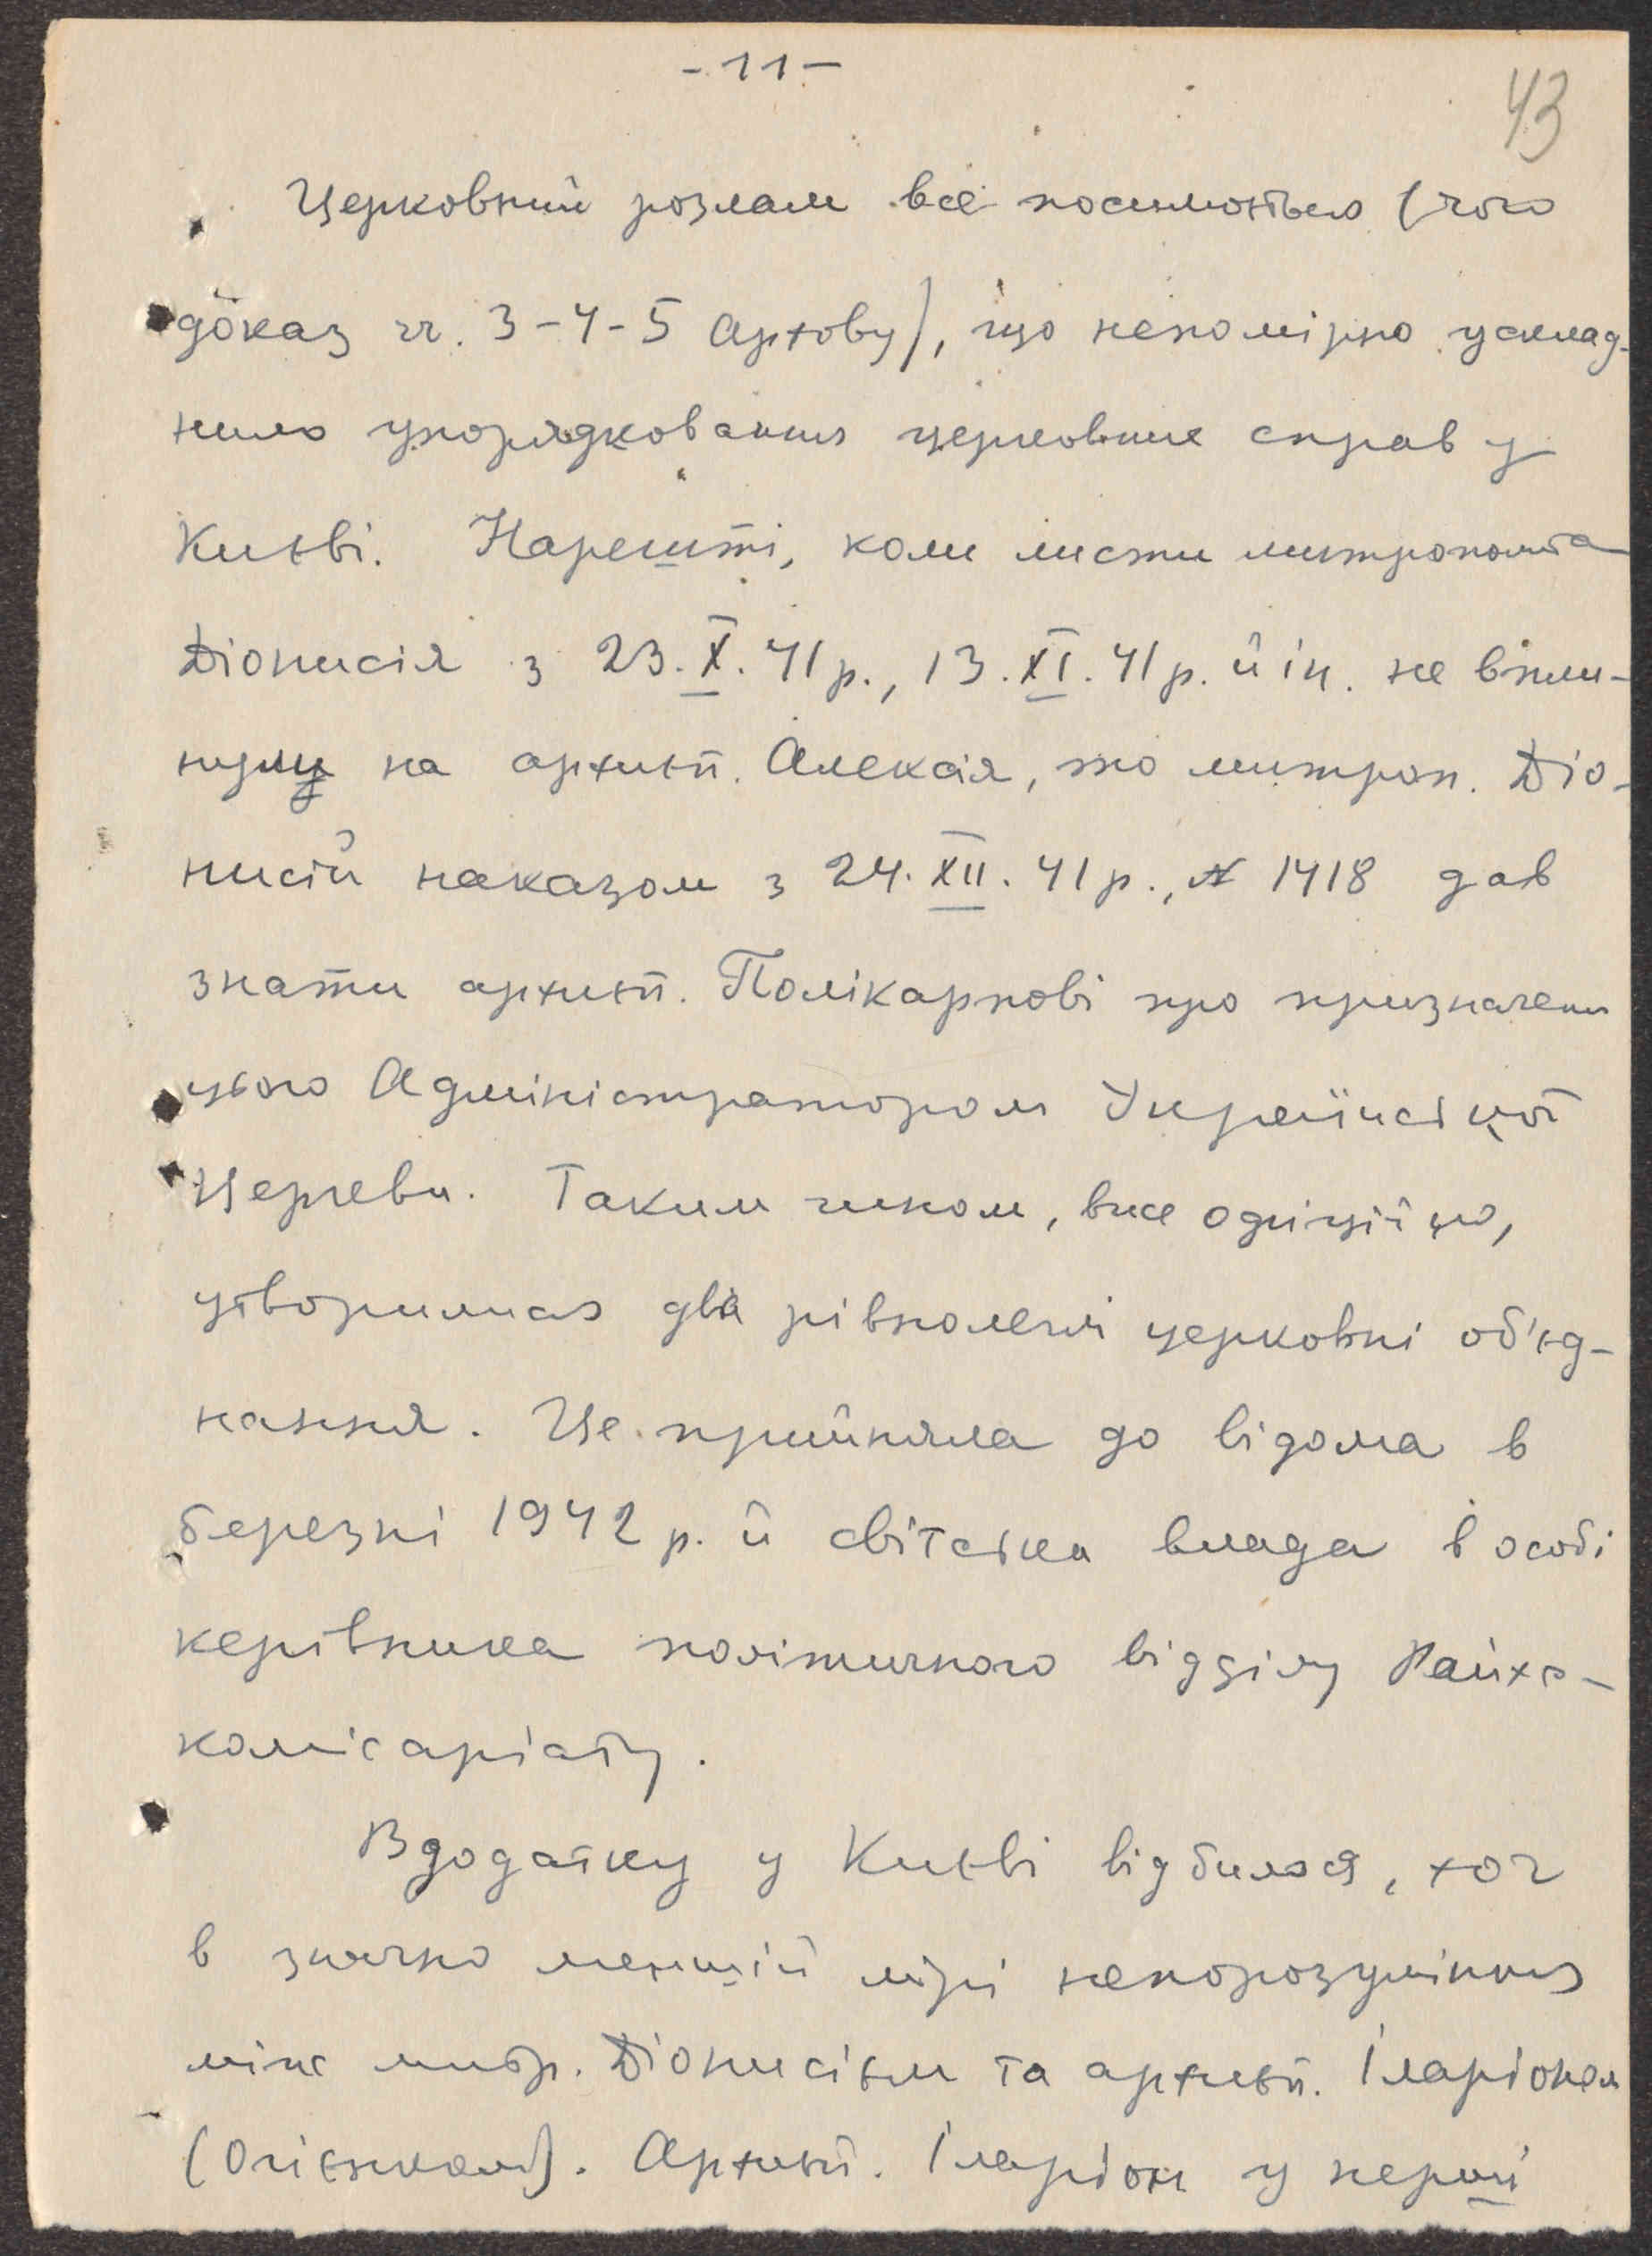 - 11 -
43
Церковний розлам все посилювався (чого
доказ чч. 3-4-5 Архову), що непомірно усклад-
нило упорядкования церковних справ у
Києві. Нарешті, коли листи митрополита
Діонисія з 23.X.41 р., 13.XI.41 р. й ін. не впли-
нули на архиєп. Алексія, то митроп. Діо-
нисій наказом з 24.XII.41 р., № 1418 дав
знати архиєп. Полікарпові про призначення
його Адміністратором Української
Церкви. Таким чином, вже офіційно,
утворилися два рівнолеглі церковні об'єд-
нання. Це прийняла до відома в
березні 1942 р. й світська влада в особі
керівника політичного відділу Райхс-
комісаріату.
В додатку у Києві відбилося, хоч
в значно меншій мірі непорозуміння
між митр. Діонисієм та архиєп. Іларіоном
(Огієнком). Архиєп. Іларіон у перші